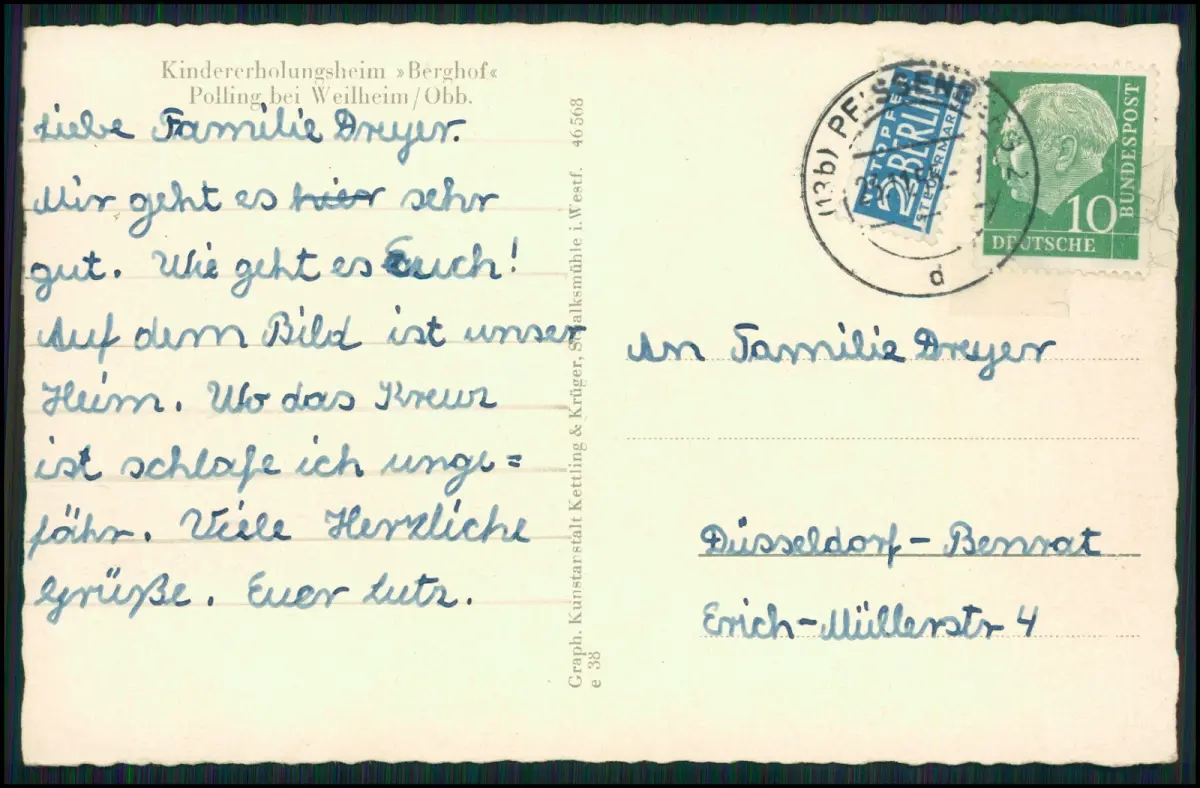 Kindererholungsheim »Berghof«
Polling bei Weilheim/Obb.
Liebe Familie Dreyer.
Mir geht es hier sehr
gut. Wie geht es Euch!
Auf dem Bild ist unser
Heim. Wo das Kreuz
ist schlafe ich unge=
fähr. Viele Herzliche
Grüße. Euer Lutz.
Graph. Kunstanstalt Kettling & Krüger, Schalksmühle i. Westf. 46568
e 38
(13b) PEISSENBERG 2
d
NOTOPFER
2 BERLIN
STEUERMARKE
10
DEUTSCHE
BUNDESPOST
An Familie Dreyer
Düsseldorf-Benrat
Erich-Müllerstr 4